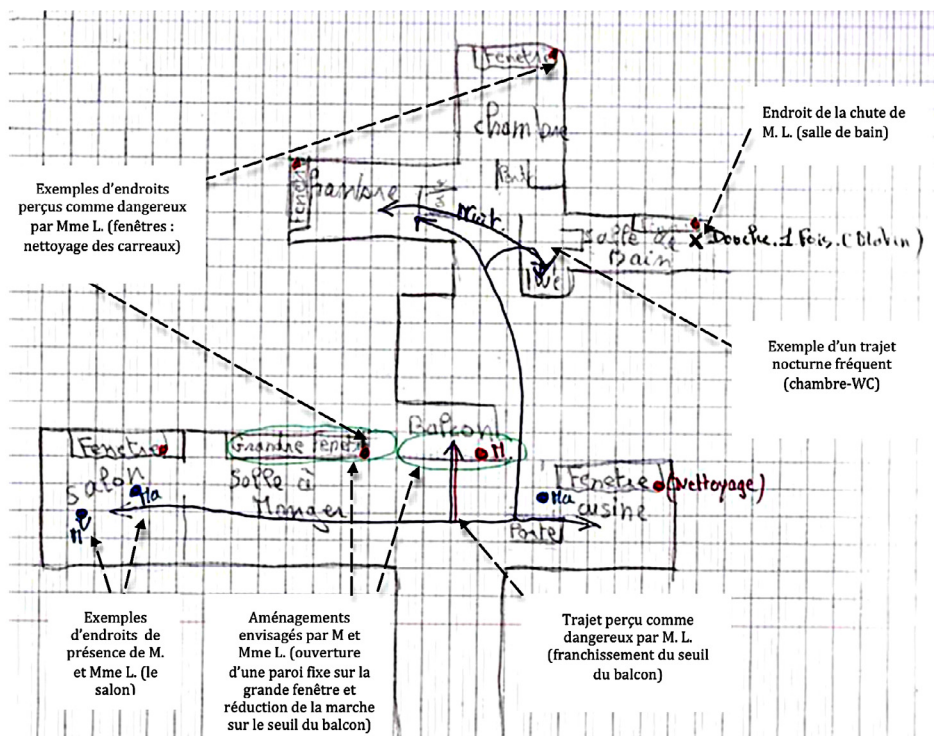 Fenetre
chambre
Porte
Endroit de la chute de
M. L. (salle de bain)
Exemples d'endroits
perçus comme dangereux
par Mme L. (fenêtres :
nettoyage des carreaux)
Fenetre
chambre
Nuit.
Salle de
Bain
Douche. 1 Fois. (Matin)
Wc
Exemple d'un trajet
nocturne fréquent
(chambre-WC)
Balcon
Fenetre
Grandre Fenetre
M.
Salon
Salle à
Manger
Ma
M
Fenetre
(Nettoyage)
Ma
cusine
Porte
Exemples
d'endroits de
présence de M.
et Mme L. (le
salon)
Aménagements
envisagés par M et
Mme L. (ouverture
d'une paroi fixe sur la
grande fenêtre et
réduction de la marche
sur le seuil du balcon)
Trajet perçu comme
dangereux par M. L.
(franchissement du seuil
du balcon)